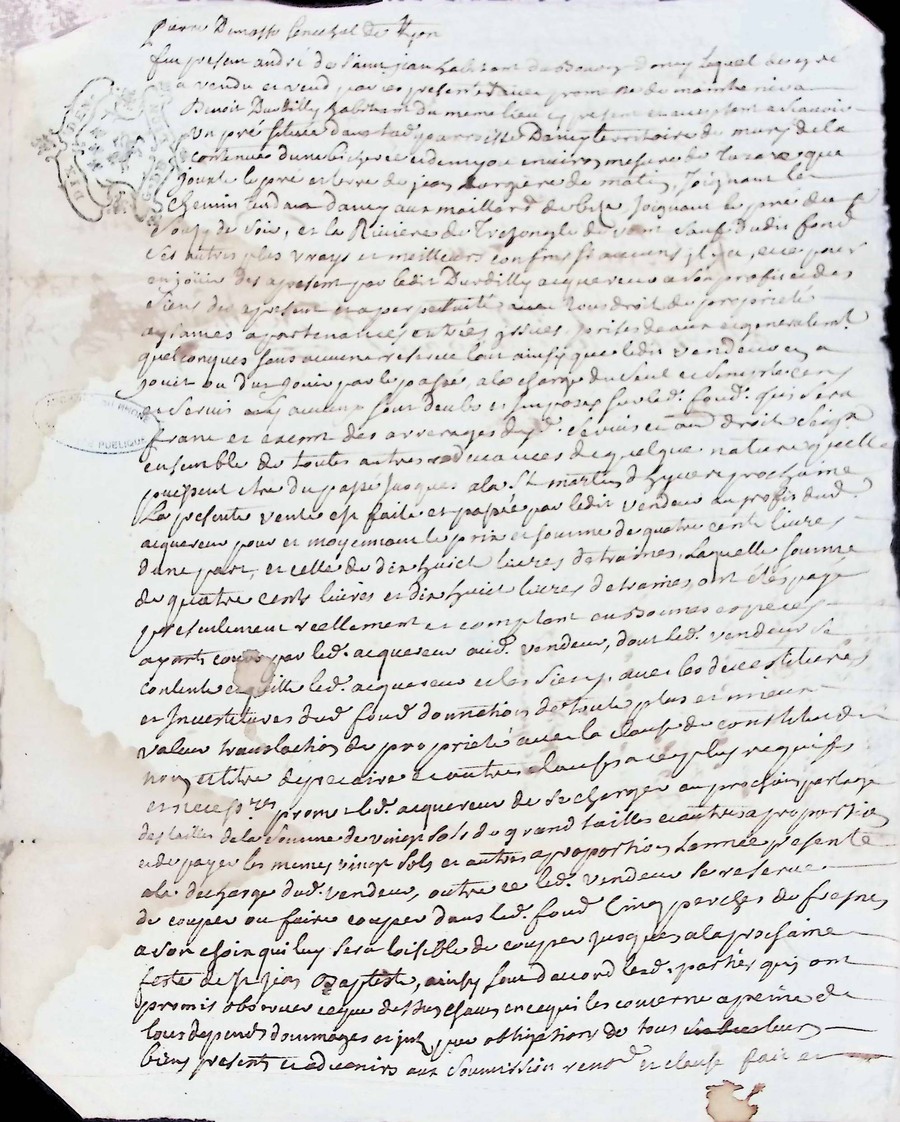 pierre Demasse senechal de Lyon
fut present andré de Saint jean habitant du Bourg Dancy lequel de gré
a vendu et vend par ces presentes avec promesse de maintenir a
Benoit Durdilly habitant du meme lieu cy present et acceptant a scavoir
Un pré scitué dans lad. parroisse Dancy territoire du mury de la
contenue dune bicheree et demy ou environ mesure de Tarare que
jouxte le pré et terre de jean de matin, joignant le
chemin tendant dancy aux maillard de bize, joignant le pré du s.r
de soir, et la Riviere de Tresongle de vent sauf dudit fond
ses autres plus vrays et meilleurs confins sy aucuns il y a, et ce pour
en joüir des apresent par ledit Durdilly acquereur a son profit et des
siens des apresent et a perpetuité avec tous droit de proprieté
aysances apartenances entrées yssües, prises deaux et generalem.t
quelconques sans aucune reserve tout ainsy que ledit vendeur en a
jouit ou dut jouir par le passé, a la charge du seul et simple cens
et servis sy aucuns sont deubs et imposés sur led. fond. qui sera
franc et exempt des arrerages de servis et mi droit
ensemble de toutes autres redevances de quelque nature quelle
puissent etre du passé jusques a la St martin dhyver prochaine
La presente vente est faite et passée par ledit vendeur au profit dud.
acquereur pour et moyennant le prix et somme de quatre cents livres
dune part, et celle de dix huict livres detraines, laquelle somme
de quatre cents livres et dix huict livres detraines, ont étés payé
presentement reellement et comptant en bonnes especes
ayants cours par led. acquereur aud. vendeur, dont led. vendeur se
contente et quitte led. acquereur et les siens, avec les devestitures
et Investitures dud. fond. donnation de toute plus et mieux
value translation de proprieté avec la clause de constitut de
nom et titre de precaire et autres clauses a ce plus requises
et necess.res promet led. acquereur de se charger au prochain partage
des tailles de la somme de vingt sols de grand tailles et autres a proportion
et de payer les memes vingt sols et autres a proportion lannée presente
a la decharge dud. vendeur, outre ce led. vendeur se reserve
de couper ou faire couper dans led. fond. Cinq perches de fresnes
a son choix qui luy sera loisible de couper jusques a la prochaine
feste de St jean Baptiste, ainsy sont daccord led. parties qui ont
promis observer ce que dessus chacun en ce qui les concerne a peine de
tous depends dommages et int. par obligation de tous leurs
biens presents et advenirs aux soumission renon. et clause fait et